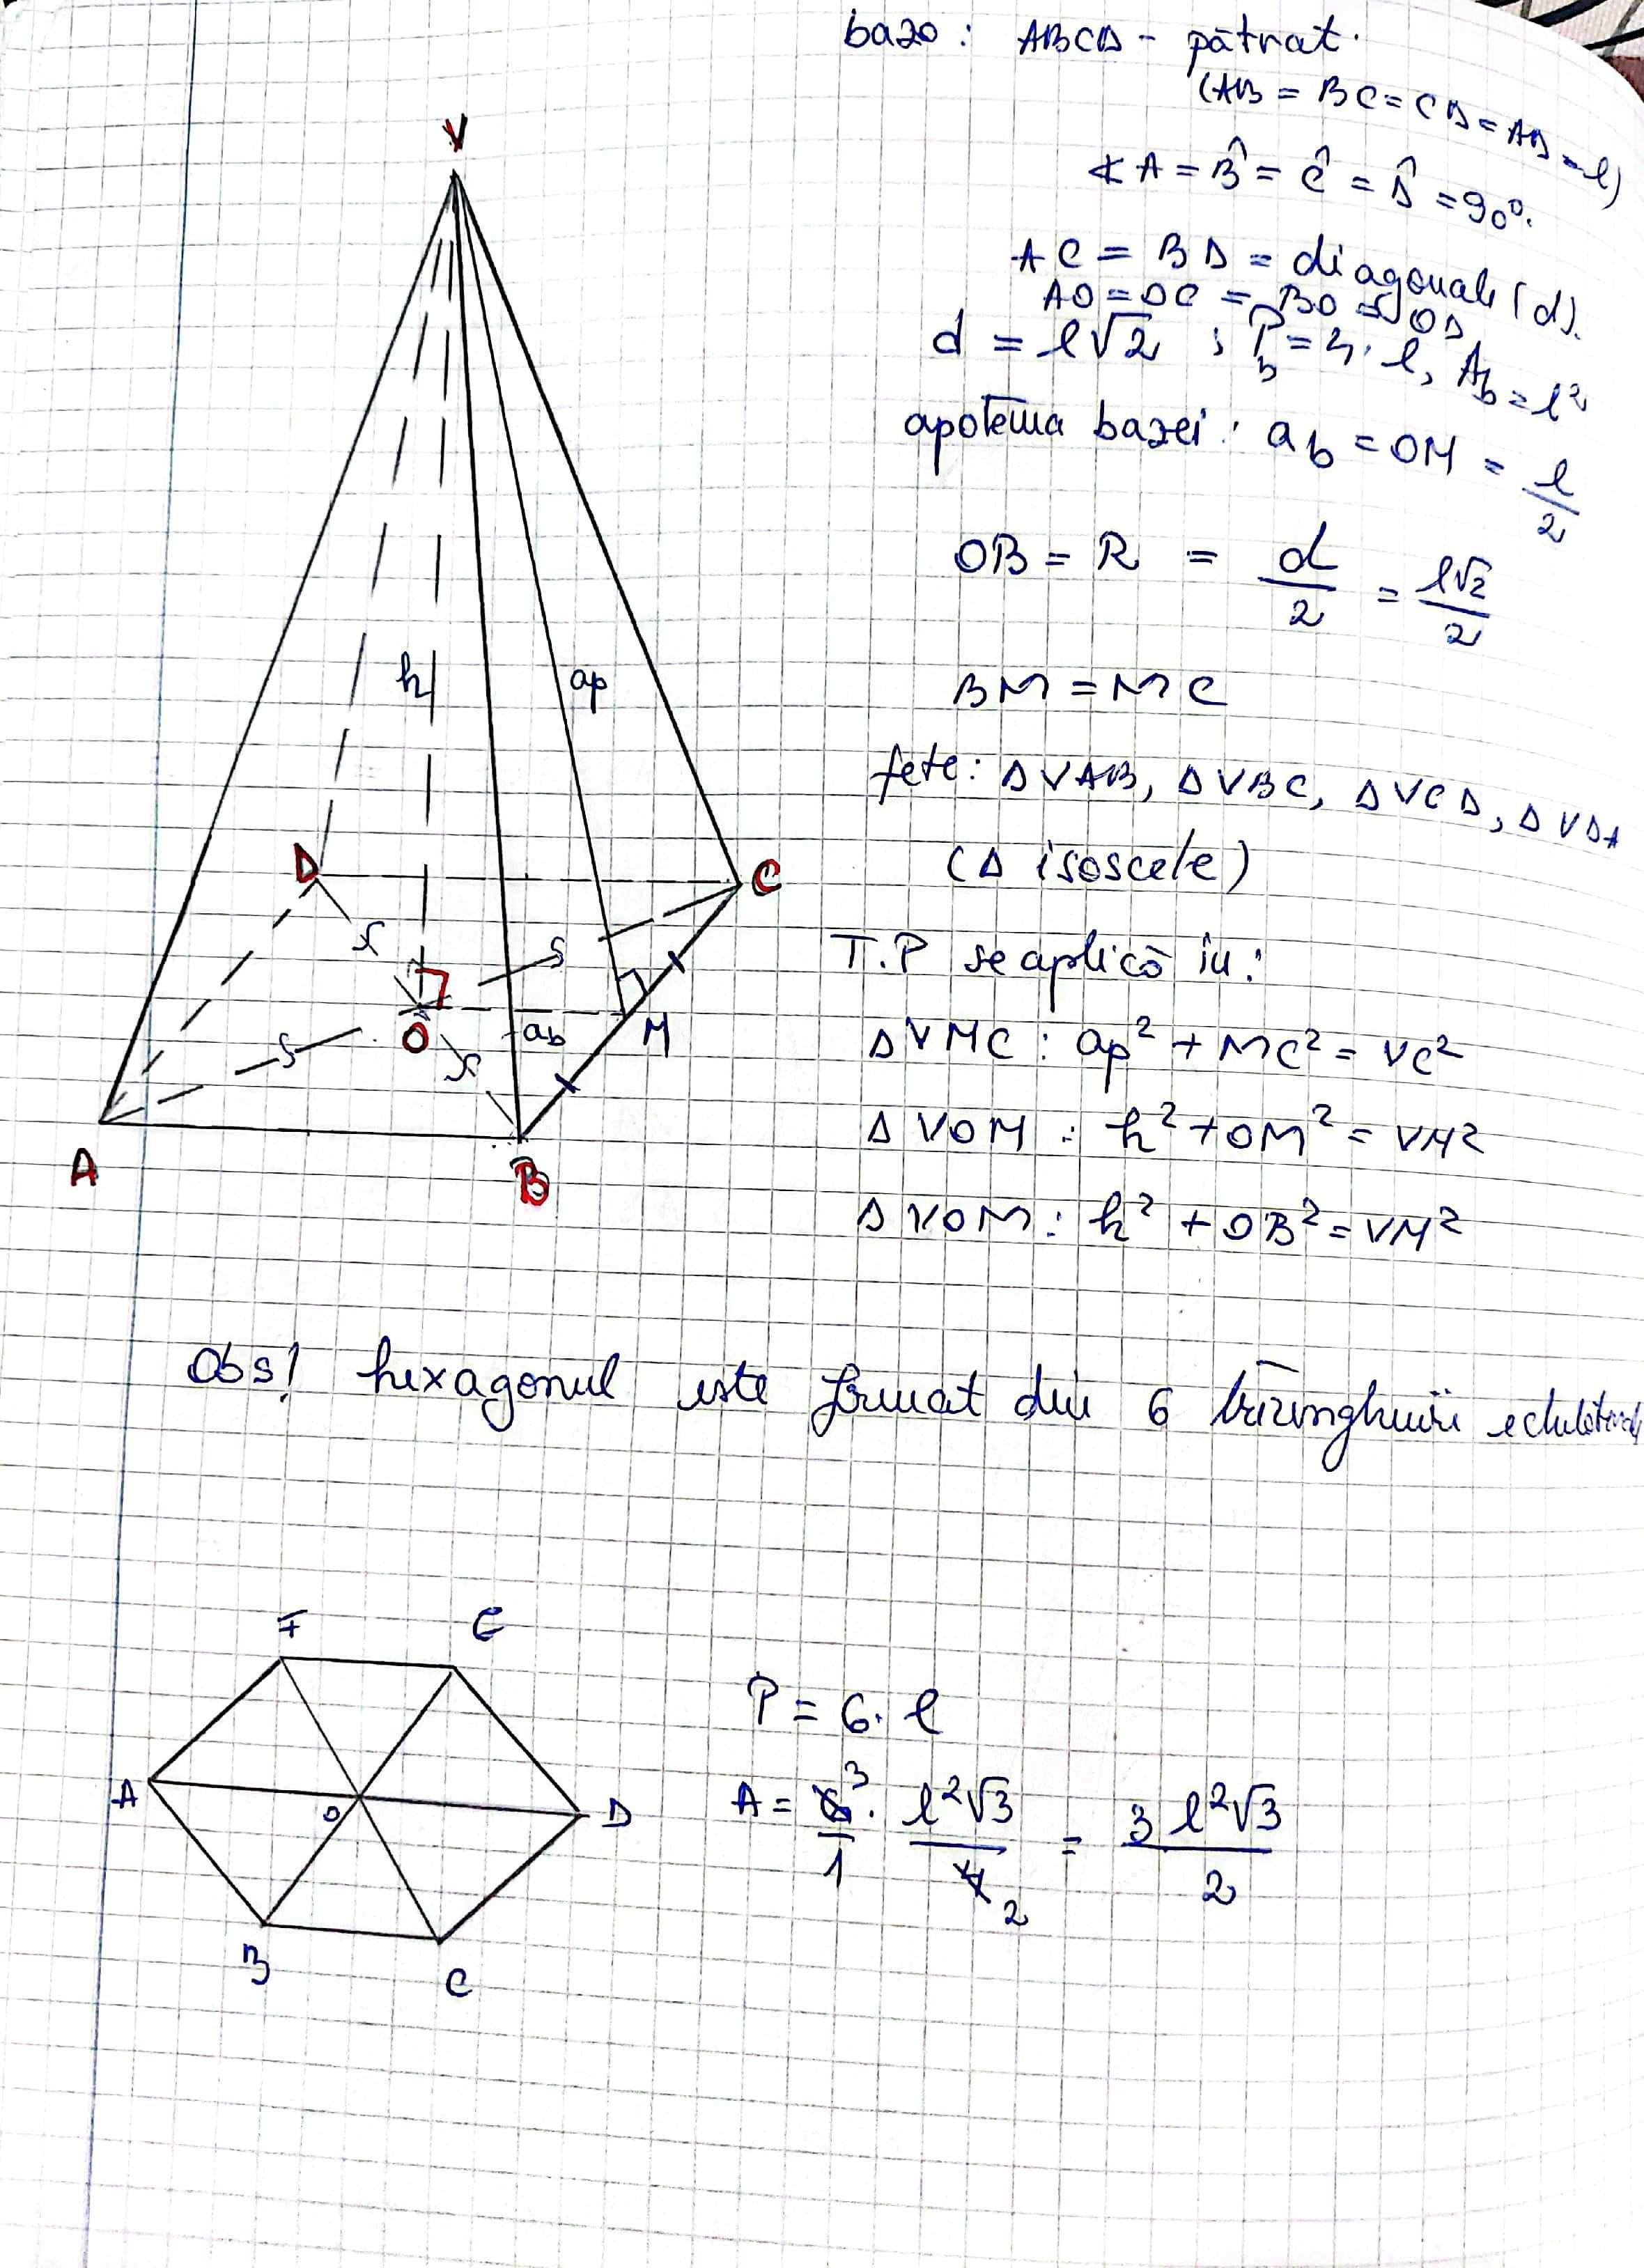 baza: ABCD - pătrat.
(AB = BC = CD = AD = l)
∢A = B̂ = Ĉ = D̂ = 90°.
AC = BD = diagonale (d).
AO = OC = BO = OD
d = l√2 ; P_b = 4·l, A_b = l²
apotema bazei: a_b = OM = l/2
OB = R = d/2 = l√2/2
BM = MC
fete: Δ VAB, Δ VBC, Δ VCD, Δ VDA
(Δ isoscele)
T.P se aplică in:
Δ VMC: ap² + MC² = VC²
Δ VOM: h² + OM² = VM²
Δ VOM: h² + OB² = VM²
V
h
ap
D
C
O
ab
M
A
B
Obs! hexagonul este format din 6 triunghiuri echilaterale
F
E
A
O
D
B
C
P = 6·l
A = 6³/1 · l²√3/4₂ = 3l²√3/2